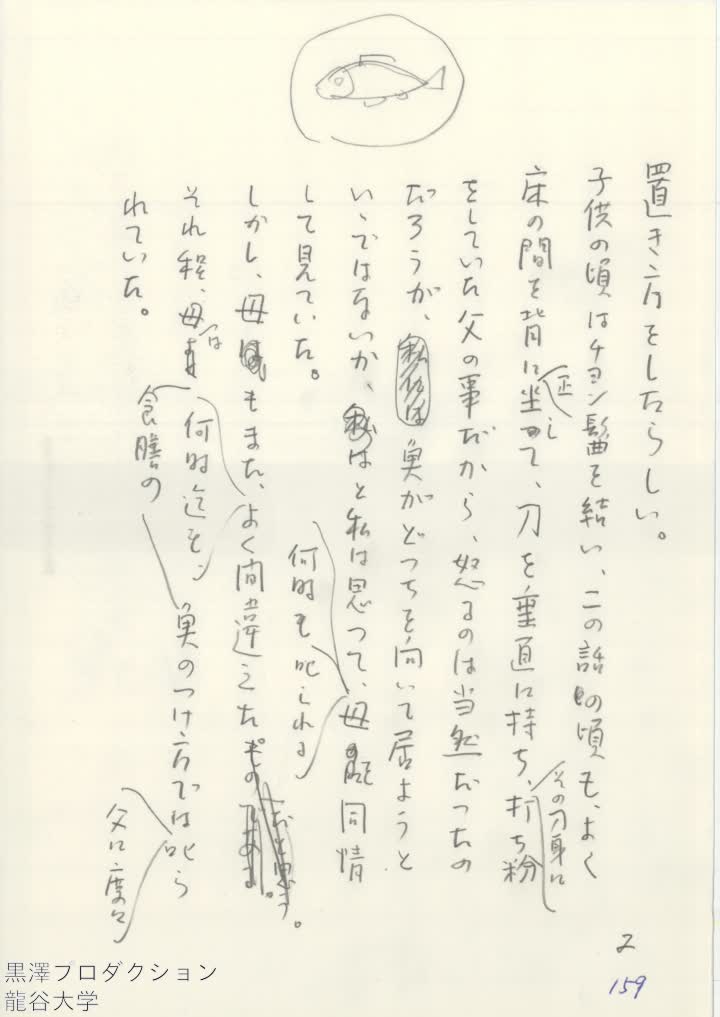 置き方をしたらしい。
子供の頃はチヨン髷を結い、この話の頃も、よく
床の間を背に正坐して、刀を垂直に持ち、その刀身に打ち粉
をしていた父の事だから、怒るのは当然だつたの
だろうが、魚がどつちを向いて居ようと
いゝではないか、と私は思つて、何時も叱られる母に同情
して見ていた。
しかし、母もまた、よく間違えたものだと思う。
それ程、母は何時迄も、食膳の魚のつけ方では父に度々叱ら
れていた。
2
159
黒澤プロダクション
龍谷大学